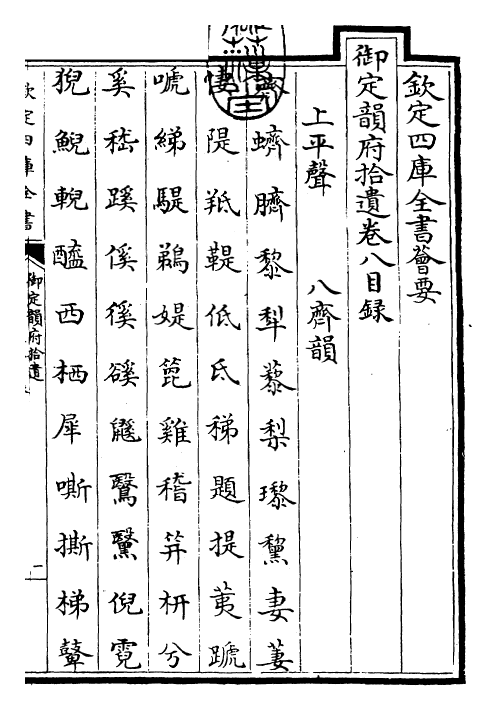 欽定四庫全書薈要
御定韻府拾遺卷八目録
上平聲　八齊韻
蠐臍黎犁藜梨瓈黧妻萋
悽隄羝鞮低氐稊題提荑蹏
嗁綈騠鵜媞箆雞稽笄枅兮
奚嵇蹊傒徯磎鼷鷖黳倪霓
猊鯢輗醯西栖犀嘶撕梯鼙
欽定四庫全書
御定韻府拾遺